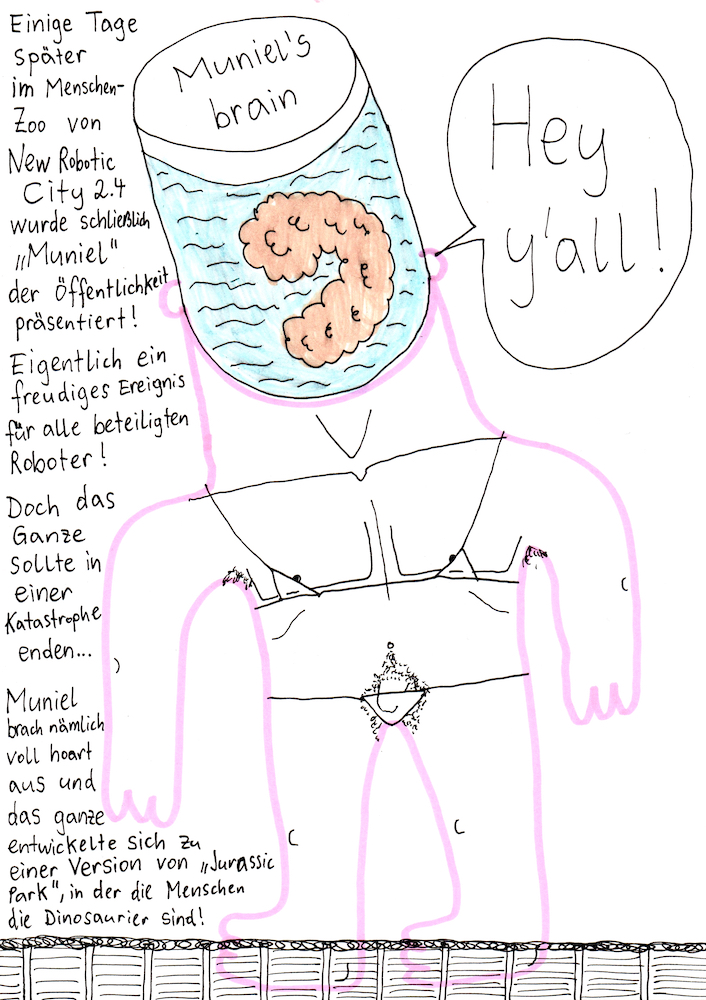 Einige Tage
später
im Menschen-
Zoo von
New Robotic
City 2.4
wurde schließlich
„Muniel"
der Öffentlichkeit
präsentiert!
Eigentlich ein
freudiges Ereignis
für alle beteiligten
Roboter!
Doch das
Ganze
sollte in
einer
Katastrophe
enden...
Muniel
brach nämlich
voll hoart
aus und
das ganze
entwickelte sich zu
einer Version von „Jurassic
Park", in der die Menschen
die Dinosaurier sind!
Muniel's
brain
Hey
y'all!